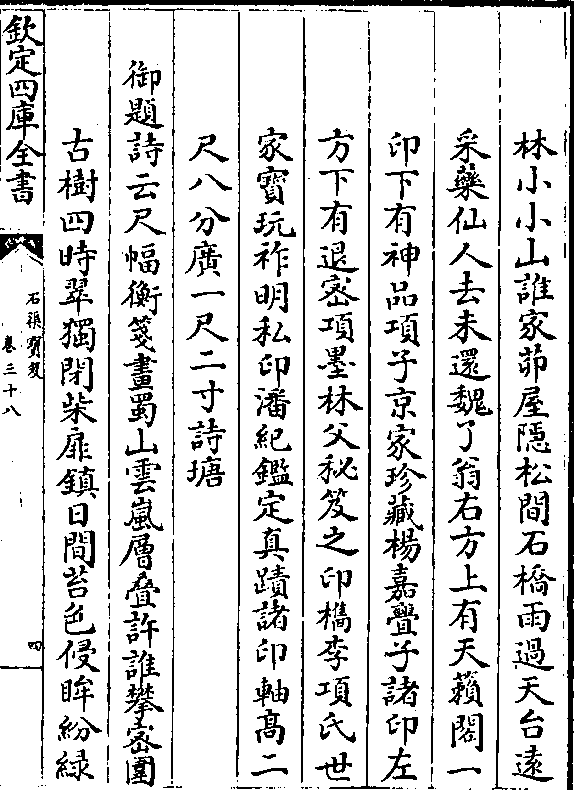 林小小山誰家茆屋隱松間石橋雨過天台遠
采藥仙人去未還魏了翁右方上有天籟閣一
印下有神品項子京家珍藏楊嘉疊子諸印左
方下有退宻項墨林父秘笈之印檇李項氏世
家寶玩祚明私印潘紀鑑定真蹟諸印軸髙二
尺八分廣一尺二寸詩塘
御題詩云尺幅衡箋畫蜀山雲嵐層疊許誰攀宻圍
古樹四時翠獨閉柴扉鎮日間苔色侵眸紛緑
欽定四庫全書
石渠寶笈
卷三十八
四